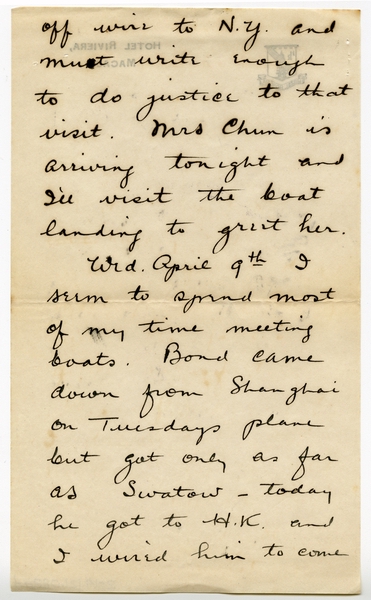 off wire to N.Y. and
must write enough
to do justice to that
visit. Mrs Chun is
arriving tonight and
I'll visit the boat
landing to greet her.
Wed. April 9th I
seem to spend most
of my time meeting
boats. Bond came
down from Shanghai
on Tuesdays plane
but got only as far
as Swatow - today
he got to H.K. and
I wired him to come
HOTEL RIVIERA,